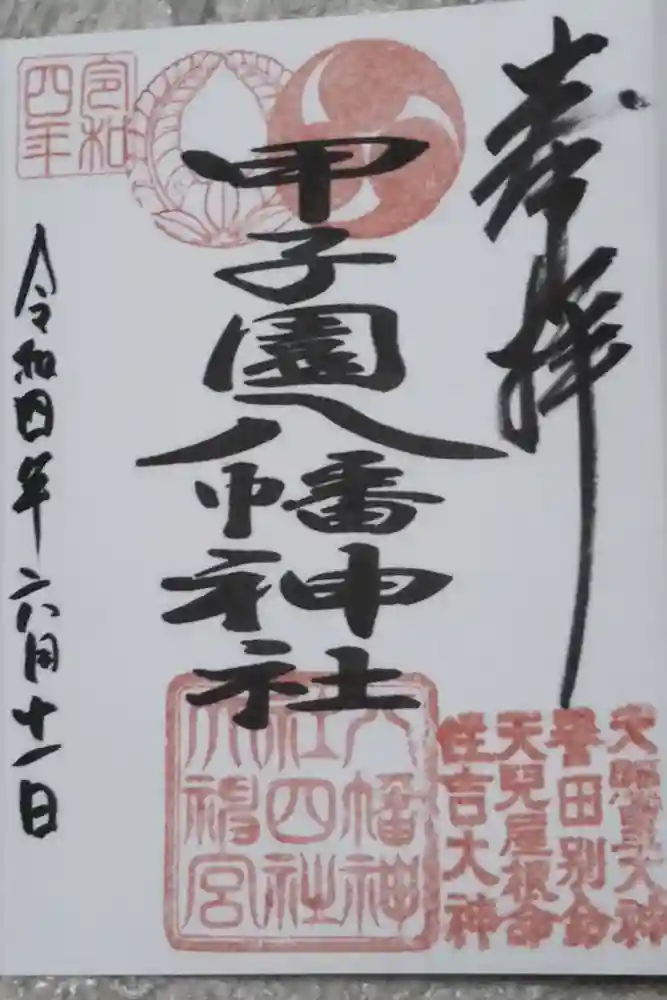 奉拝
天照皇大神
誉田別命
天兒屋根命
住吉大神
甲子園八幡神社
八幡神
社四社
令和
四年
令和四年六月十一日